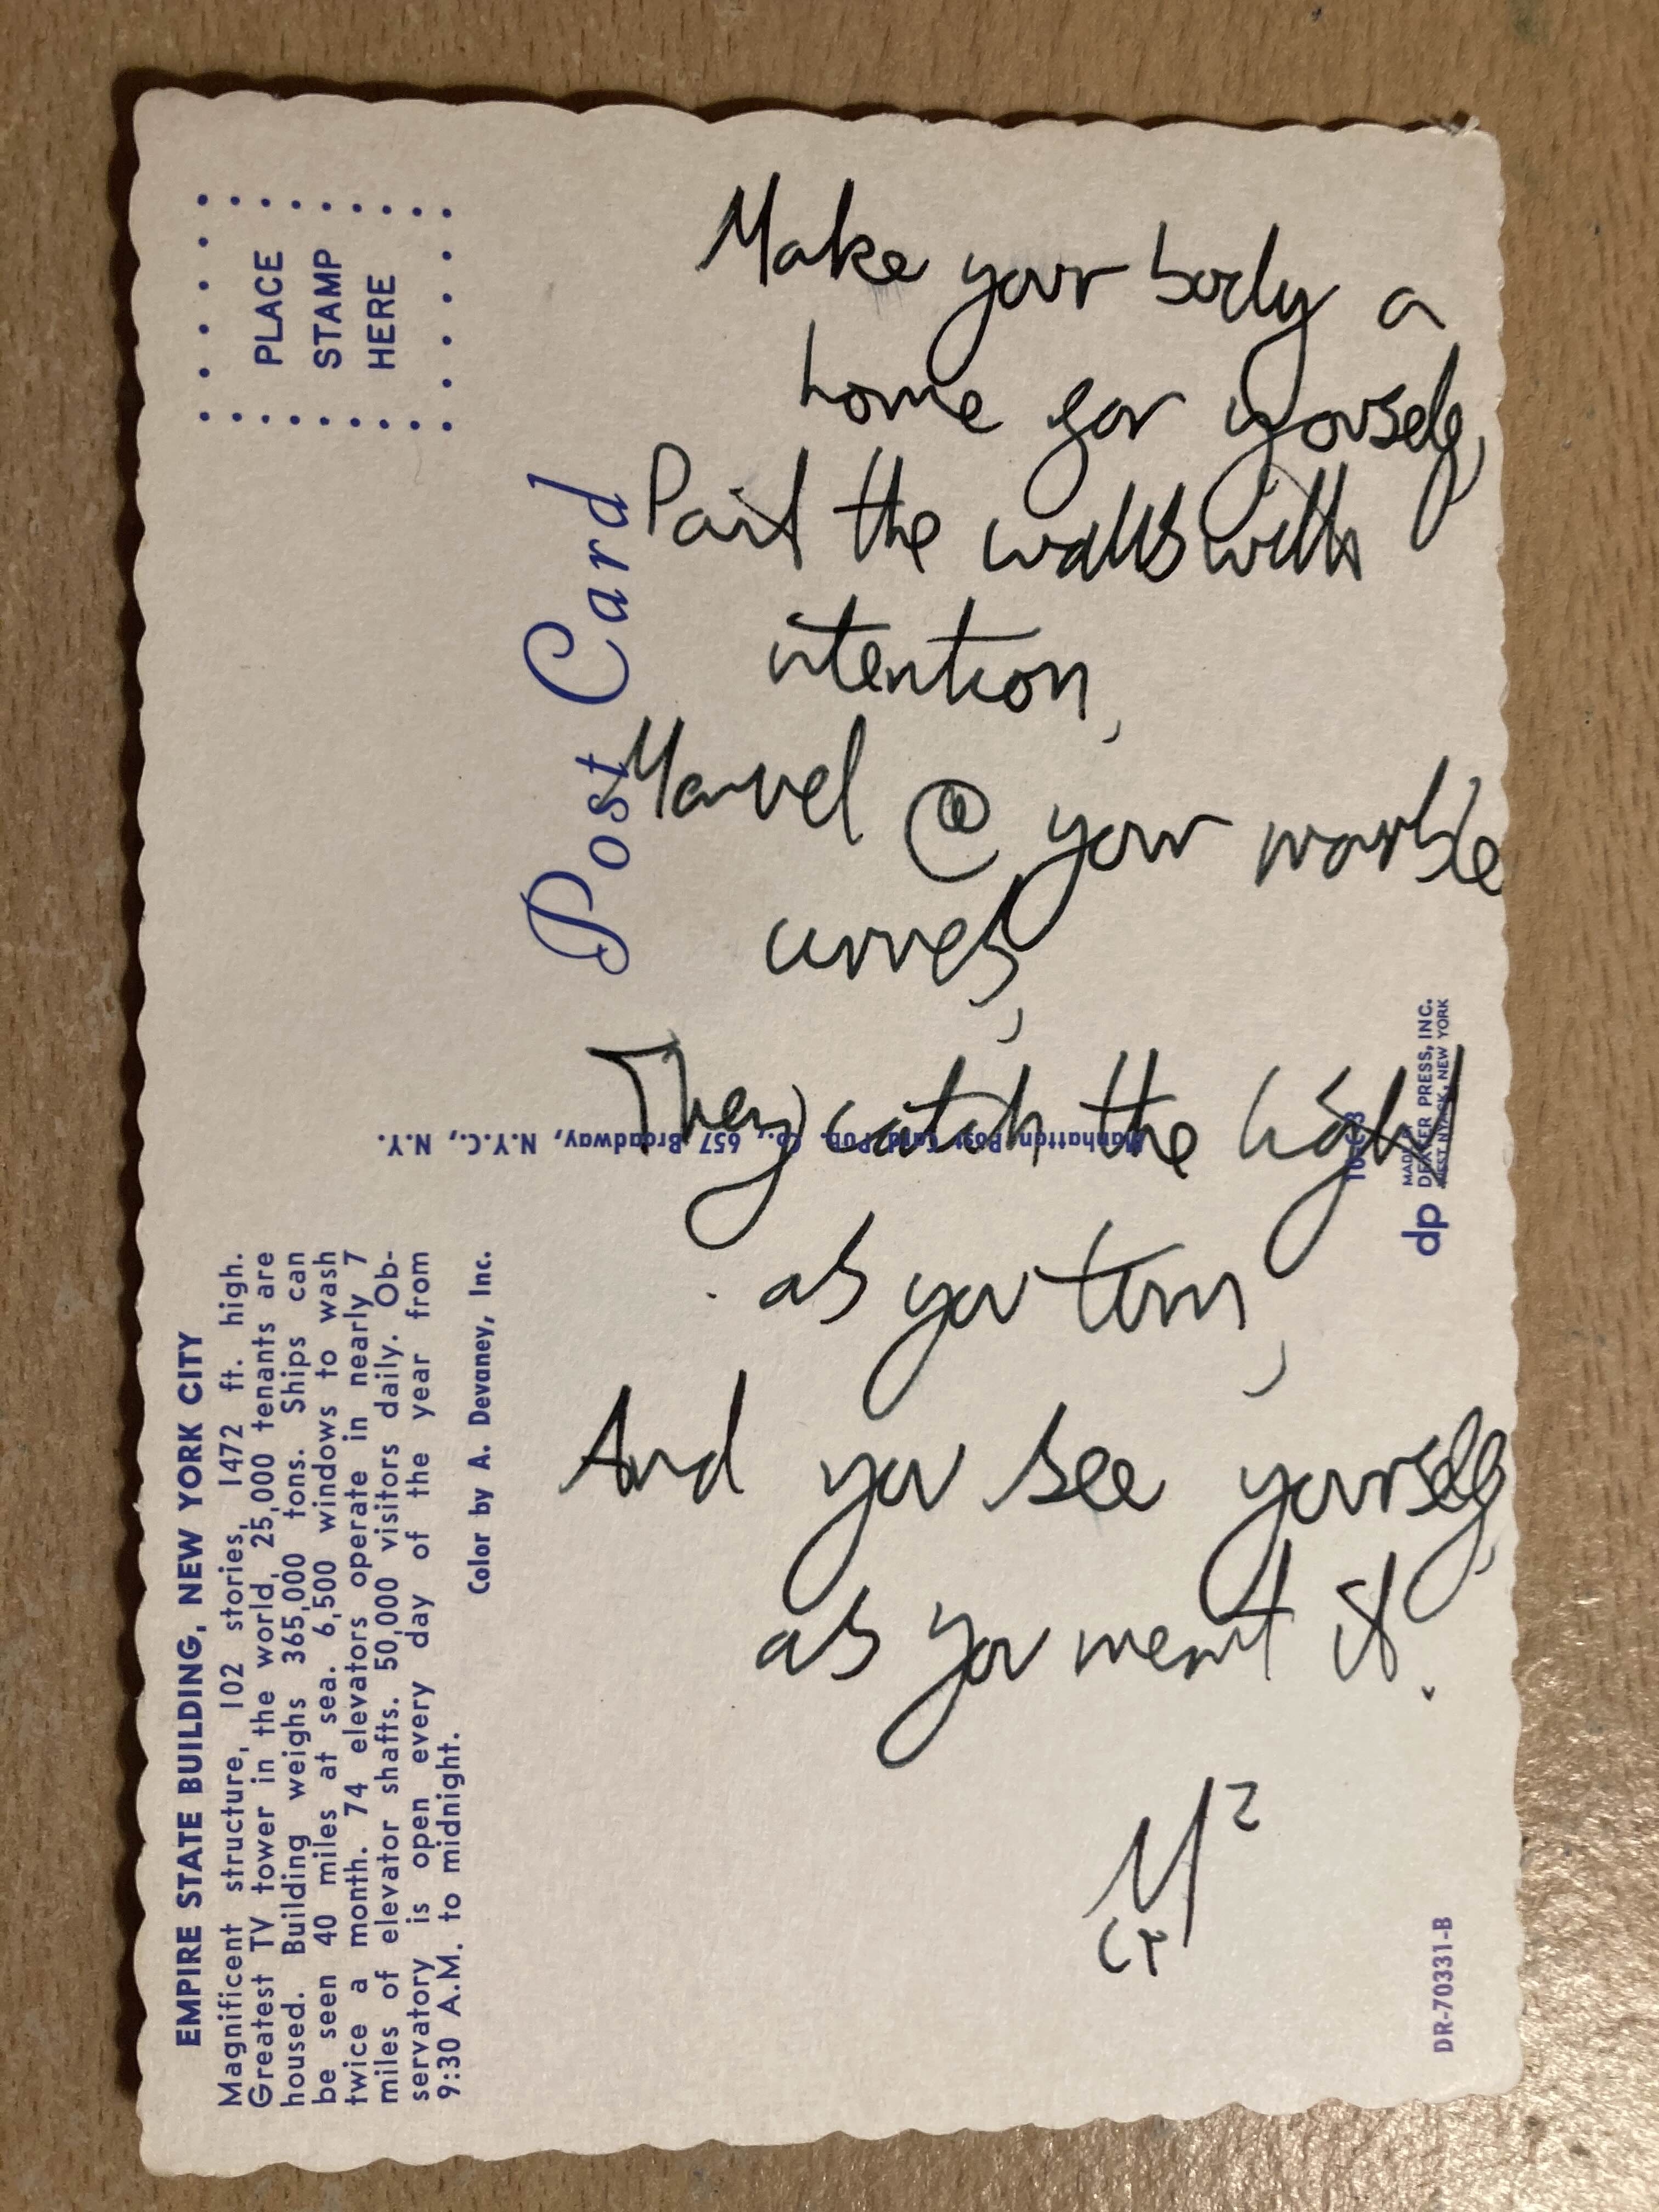 Make your body a
home for yourself,
Paint the walls with
intention,
Marvel @ your marble
curves,
They catch the light
as you turn,
And you see yourself,
as you meant it.
M²
PLACE
STAMP
HERE
Post Card
EMPIRE STATE BUILDING, NEW YORK CITY
Magnificent structure, 102 stories, 1472 ft. high.
Greatest TV tower in the world, 25,000 tenants are
housed. Building weighs 365,000 tons. Ships can
be seen 40 miles at sea. 6,500 windows to wash
twice a month. 74 elevators operate in nearly 7
miles of elevator shafts. 50,000 visitors daily. Ob-
servatory is open every day of the year from
9:30 A.M. to midnight.
Color by A. Devaney, Inc.
Manhattan Post Card Pub. Co., 657 Broadway, N.Y.C., N.Y.
dp
DEXTER PRESS, INC.
WEST NYACK, NEW YORK
DR-70331-B